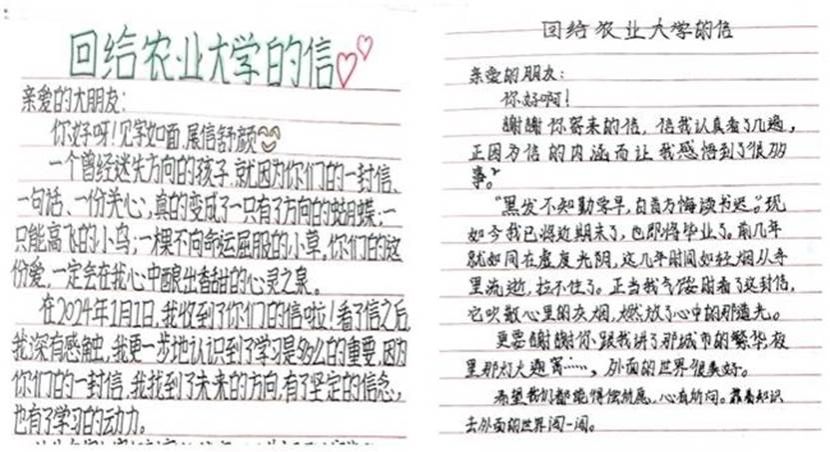 回给农业大学的信
亲爱的大朋友：
你好呀！见字如面，展信舒颜
一个曾经迷失方向的孩子，就因为你们的一封信、
一句话、一份关心，真的变成了一只有了方向的蝴蝶；一
只能高飞的小鸟；一棵不向命运屈服的小草，你们的这
份爱，一定会在我心中酿出香甜的心灵之泉。
在2024年1月1日，我收到了你们的信啦！看了信之后，
我深有感触，我更一步地认识到了学习是多么的重要，因为
你们的一封信，我找到了未来的方向，有了坚定的信念，
也有了学习的动力。
回给农业大学的信
亲爱的朋友：
你好啊！
谢谢你寄来的信，信我认真看了几遍，
正因为信的内涵而让我感悟到了很多
事。
“黑发不知勤学早，白首方悔读书迟。”现
如今我已将近期末了，也即将毕业了。前几年
就如同在虚度光阴，这几年时间如轻烟从手
里流逝，拉不住了。正当我气馁时看了这封信，
它吹散心里的灰烟，燃放了心中的那道光。
更要谢谢你跟我讲了那城市的繁华夜
里那灯火通宵……，外面的世界很美好。
希望我们都能得偿所愿，心有所问。靠着知识
去外面的世界闯一闯。